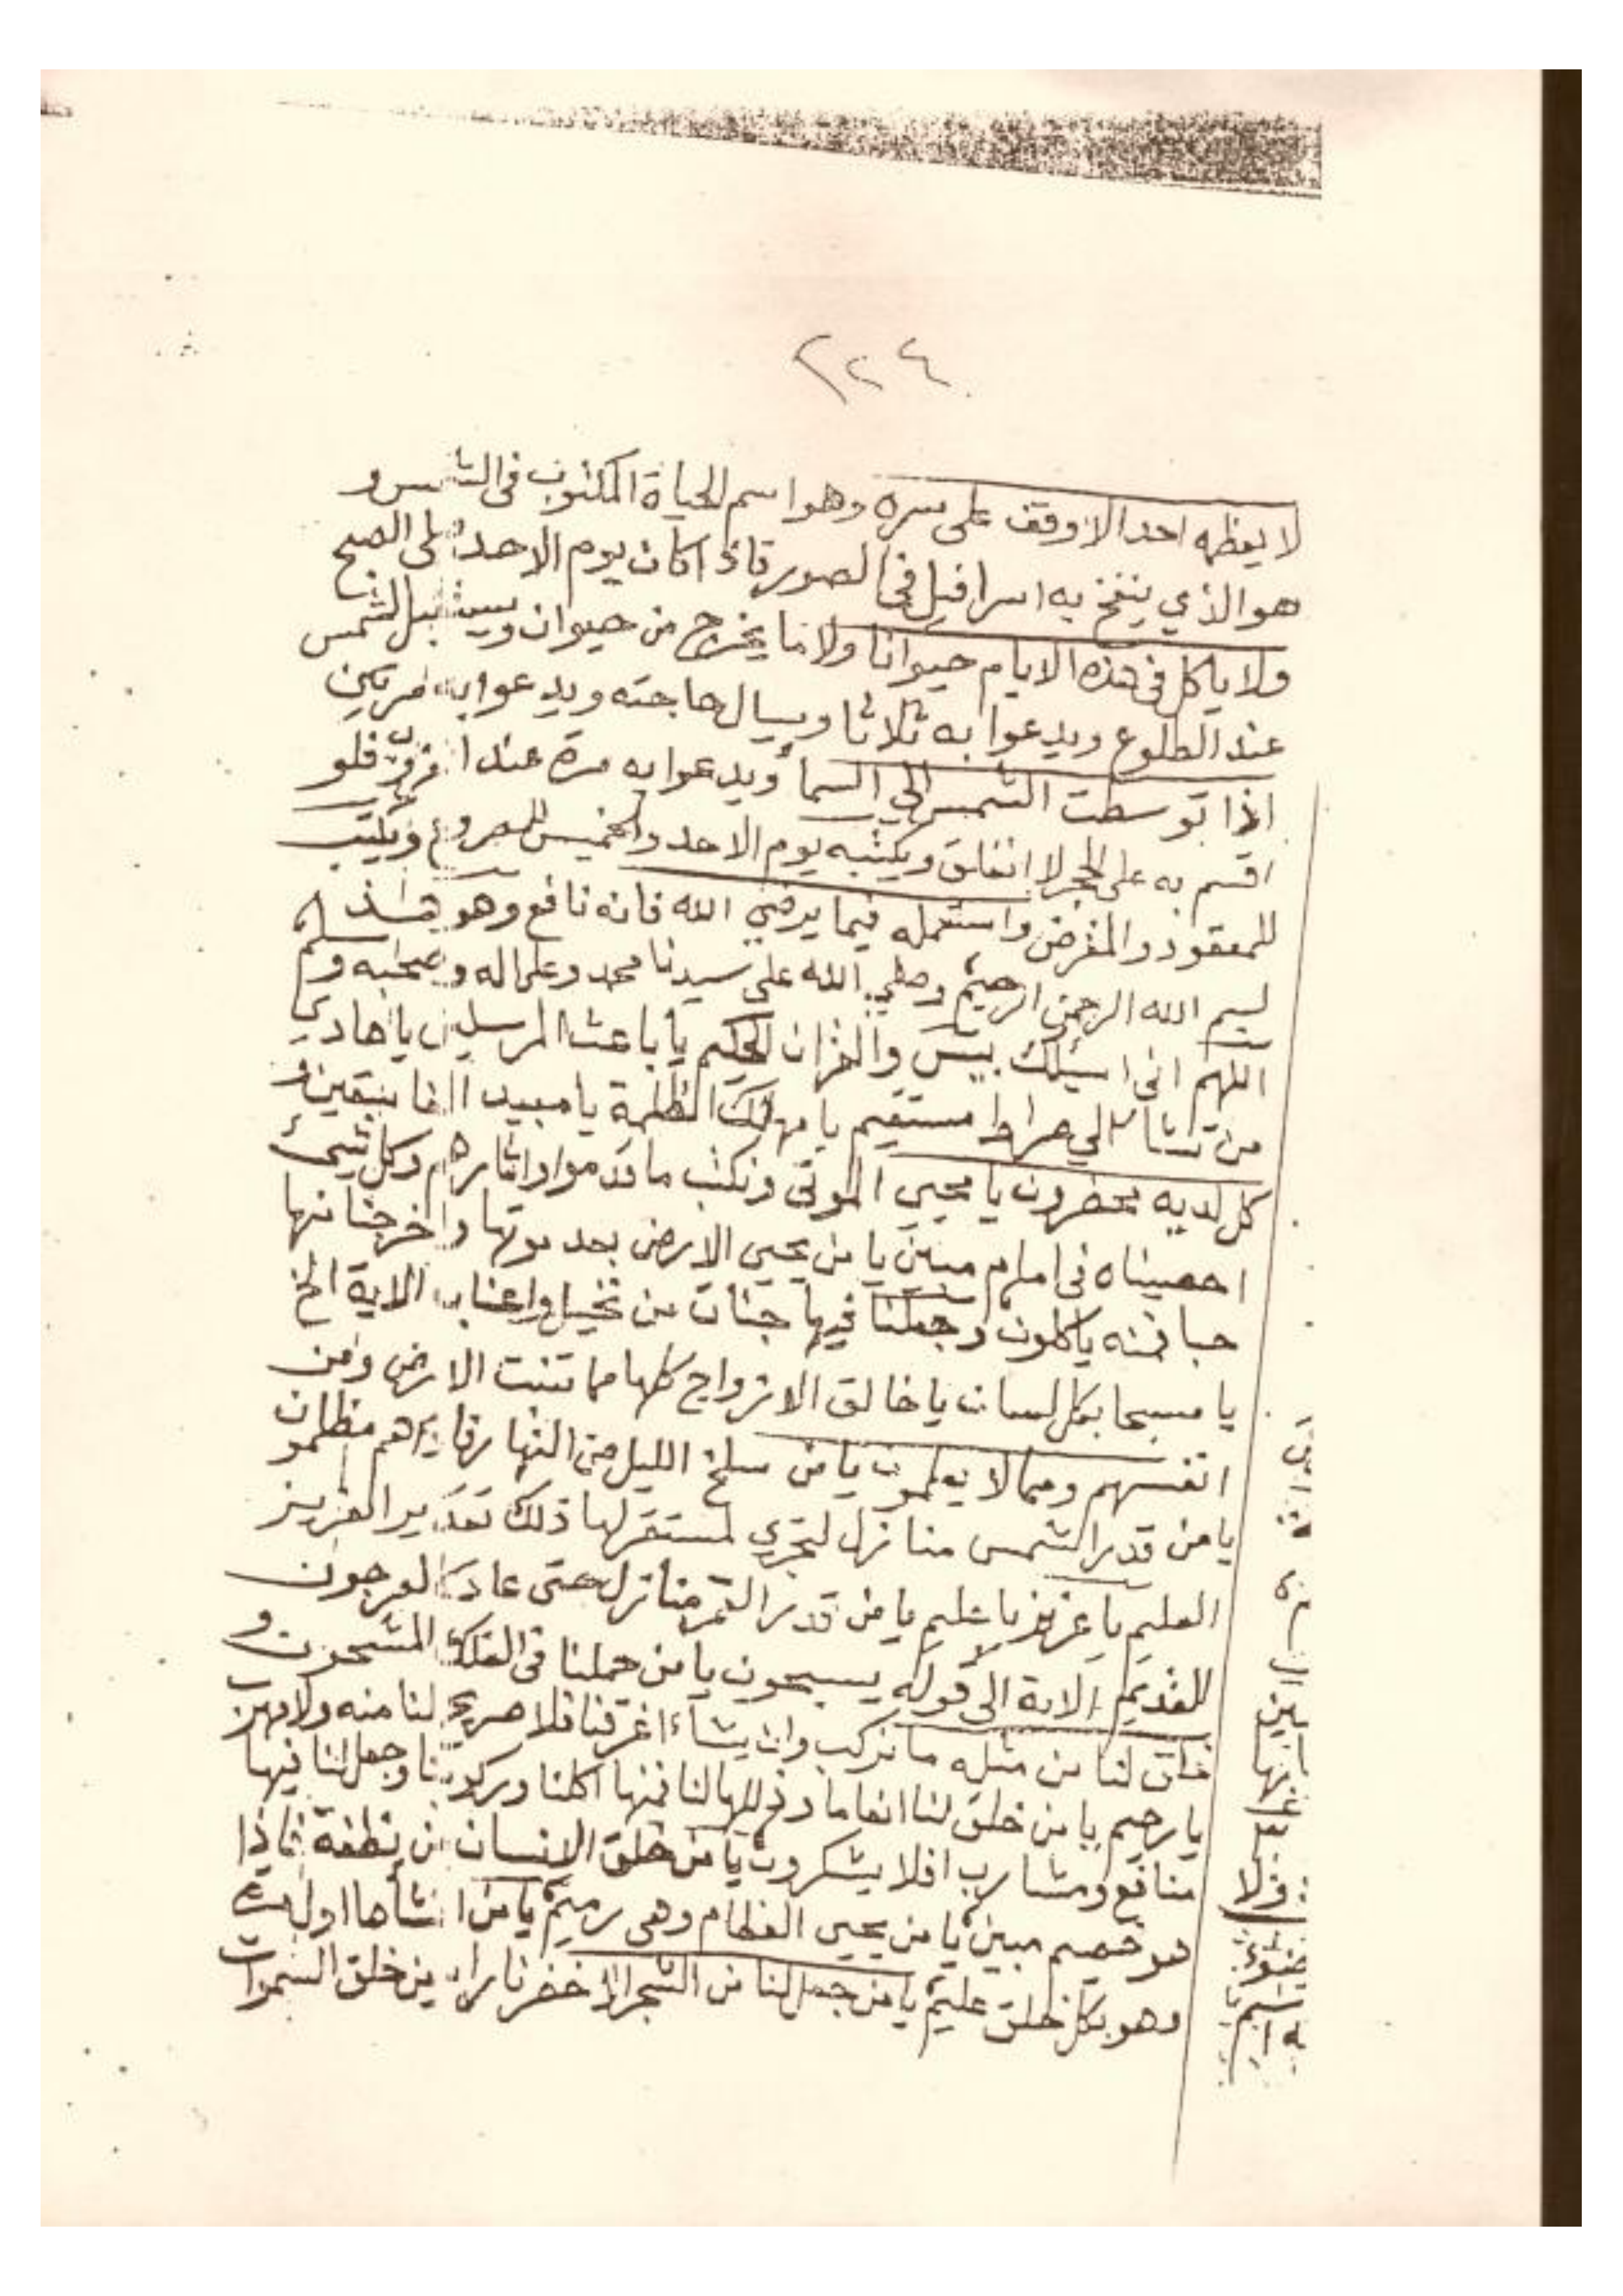 ٢٢٤
لا يعظمه احد الا وقف على سره وهو اسم الحياة المكتوب فى الشمس و
هو الذي ينفخ به اسرافيل فى الصور فاذا كان يوم الاحد صلى الصبح
ولا ياكل فى هذه الايام حيوانا ولا ما يخرج من حيوان ويستقبل الشمس
عند الطلوع ويدعوا به ثلاثا ويسال حاجته ويدعوا به مرتين
اذا توسطت الشمس الي السما ويدعوا به مرة عند الغروب فلو
اقسم به على الحجر لانفلق ويكتبه يوم الاحد والخميس للمصروع ويكتب
للمعقود والمغرض واستعمله فيما يرضي الله فانه نافع وهو هذا
بسم الله الرحمن الرحيم وصلي الله على سيدنا محمد وعلى اله وصحبه وسلم
اللهم انى اسئلك بيس والقران الحكيم يا باعث المرسلين يا هادي
من تشا الي صراط مستقيم يا مهلك الظلمة يا مبيد الفاسقين و
كل لديه محضرون يا محيي الموتى ونكتب ما قدموا واثارهم وكل شيئ
احصيناه فى امام مبين يا من يحيى الارض بعد موتها واخرجنا منها
حبا فمنه ياكلون وجعلنا فيها جنات من نخيل واعناب الاية الخ
يا مسبحا بكل لسان يا خالق الازواج كلها مما تنبت الارض ومن
انفسهم ومما لا يعلمون يا من سلخ الليل من النهار فاذا هم مظلمون
يا من قدر الشمس منازل لتجري لمستقر لها ذلك تقدير العزيز
العليم يا عزيز يا عليم يا من قدر القمر منازل حتى عاد كالعرجون
القديم الاية الى قوله يسبحون يا من حملنا فى الفلك المشحون و
خلق لنا من مثله ما نركب وان يشاء اغرقنا فلا صريخ لنا منه ولا مهرب
يا رحيم يا من خلق لنا انعاما وذللها لنا فمنها اكلنا وركوبنا وجعل لنا فيها
منافع ومشارب افلا يشكرون يا من خلق الانسان من نطفة فاذا
هو خصيم مبين يا من يحيى العظام وهى رميم يا من انشأها اول مرة
وهو بكل خلق عليم يا من جعل لنا من الشجر الاخضر نارا يا من خلق السموات